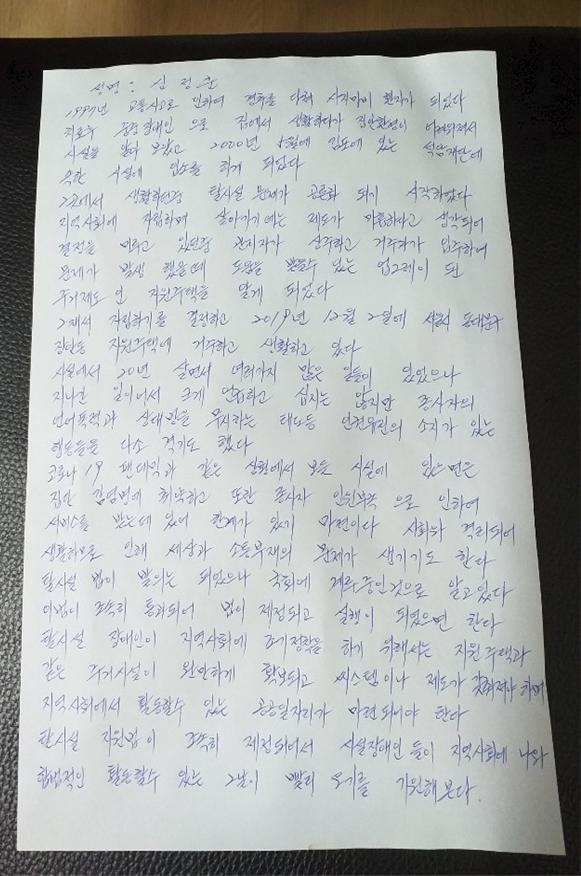 성명 : 신정순
1997년 교통사고로 인하여 경추를 다쳐 사지마비 환자가 되었다
치료후 중증장애인 으로 집에서 생활하다가 집안환경이 어려워져서
시설을 알아 보았고 2000년 5월에 김포에 있는 석암재단에
속한 시설에 입소를 하게 되었다
그곳에서 생활하던중 탈시설 문제가 공론화 되기 시작하였다
지역사회에 자립하며 살아가기 에는 제도가 미흡하다고 생각되어
결정을 미루고 있던중 관리자가 상주하고 거주자가 입주하여
문제가 발생 했을때 도움을 받을수 있는 업그레이 된
주거제도 인 지원주택을 알게 되었다
그래서 자립하기를 결정하고 2019년 12월 2일에 서울시 동대문구
장안동 지원주택에 거주하고 생활하고 있다
시설에서 20년 살면서 여러가지 많은 일들이 있었으나
지나간 일이어서 크게 언급하고 십지는 않지만 종사자의
언어폭력과 상대방을 무시하는 태도등 인권유린의 소지가 있는
행동들을 다소 겪기도 했다
코로나 19 팬데믹과 같은 상황에서 보듯 시설에 있으면은
집단 감염병에 취약하고 또한 종사자 인원부족 으로 인하여
서비스를 받는데 있어 한계가 있기 마련이다 사회와 격리되어
생활하므로 인해 세상과 소통부재의 문제가 생기기도 한다
탈시설 법이 발의는 되었으나 국회에 계류중인것으로 알고있다
이법이 조속히 통과되어 법이 제정되고 실행이 되었으면 한다
탈시설 장애인이 지역사회에 조기정착을 하기 위해서는 지원주택과
같은 주거시설이 원만하게 확보되고 씨스템이나 제도가 갖춰져야 하며
지역사회에서 활동할수 있는 공공일자리가 마련되어야 한다
탈시설 지원법이 조속히 제정되어서 시설장애인 들이 지역사회에 나와
합법적인 활동할수 있는 그날이 빨리 오기를 기원해본다.